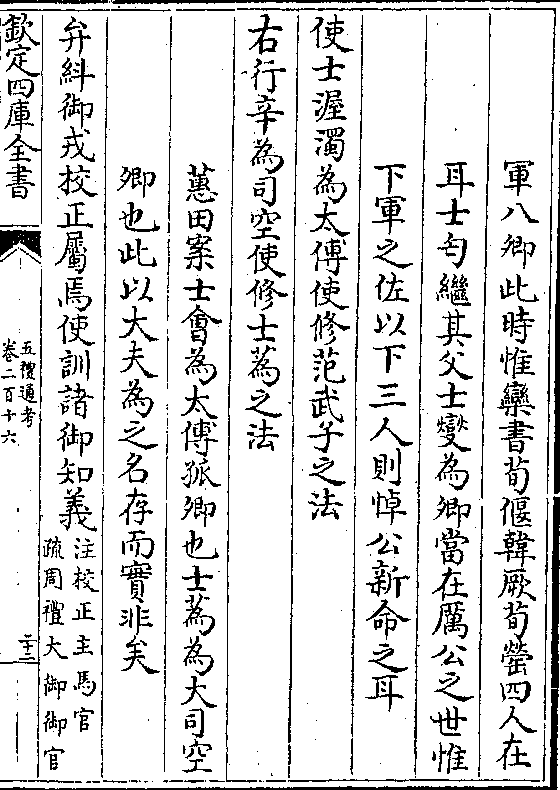 軍八卿此時惟欒書荀偃韓厥荀罃四人在
耳士匄繼其父士燮為卿當在厲公之世惟
下軍之佐以下三人則悼公新命之耳
使士渥濁為太傅使修范武子之法
右行辛為司空使修士蒍之法
蕙田案士會為太傅孤卿也士蒍為大司空
卿也此以大夫為之名存而實非矣
弁糾御戎校正屬焉使訓諸御知義
注校正主馬官
疏周禮大御御官
欽定四庫全書
五禮通考
卷二百十六
二十二